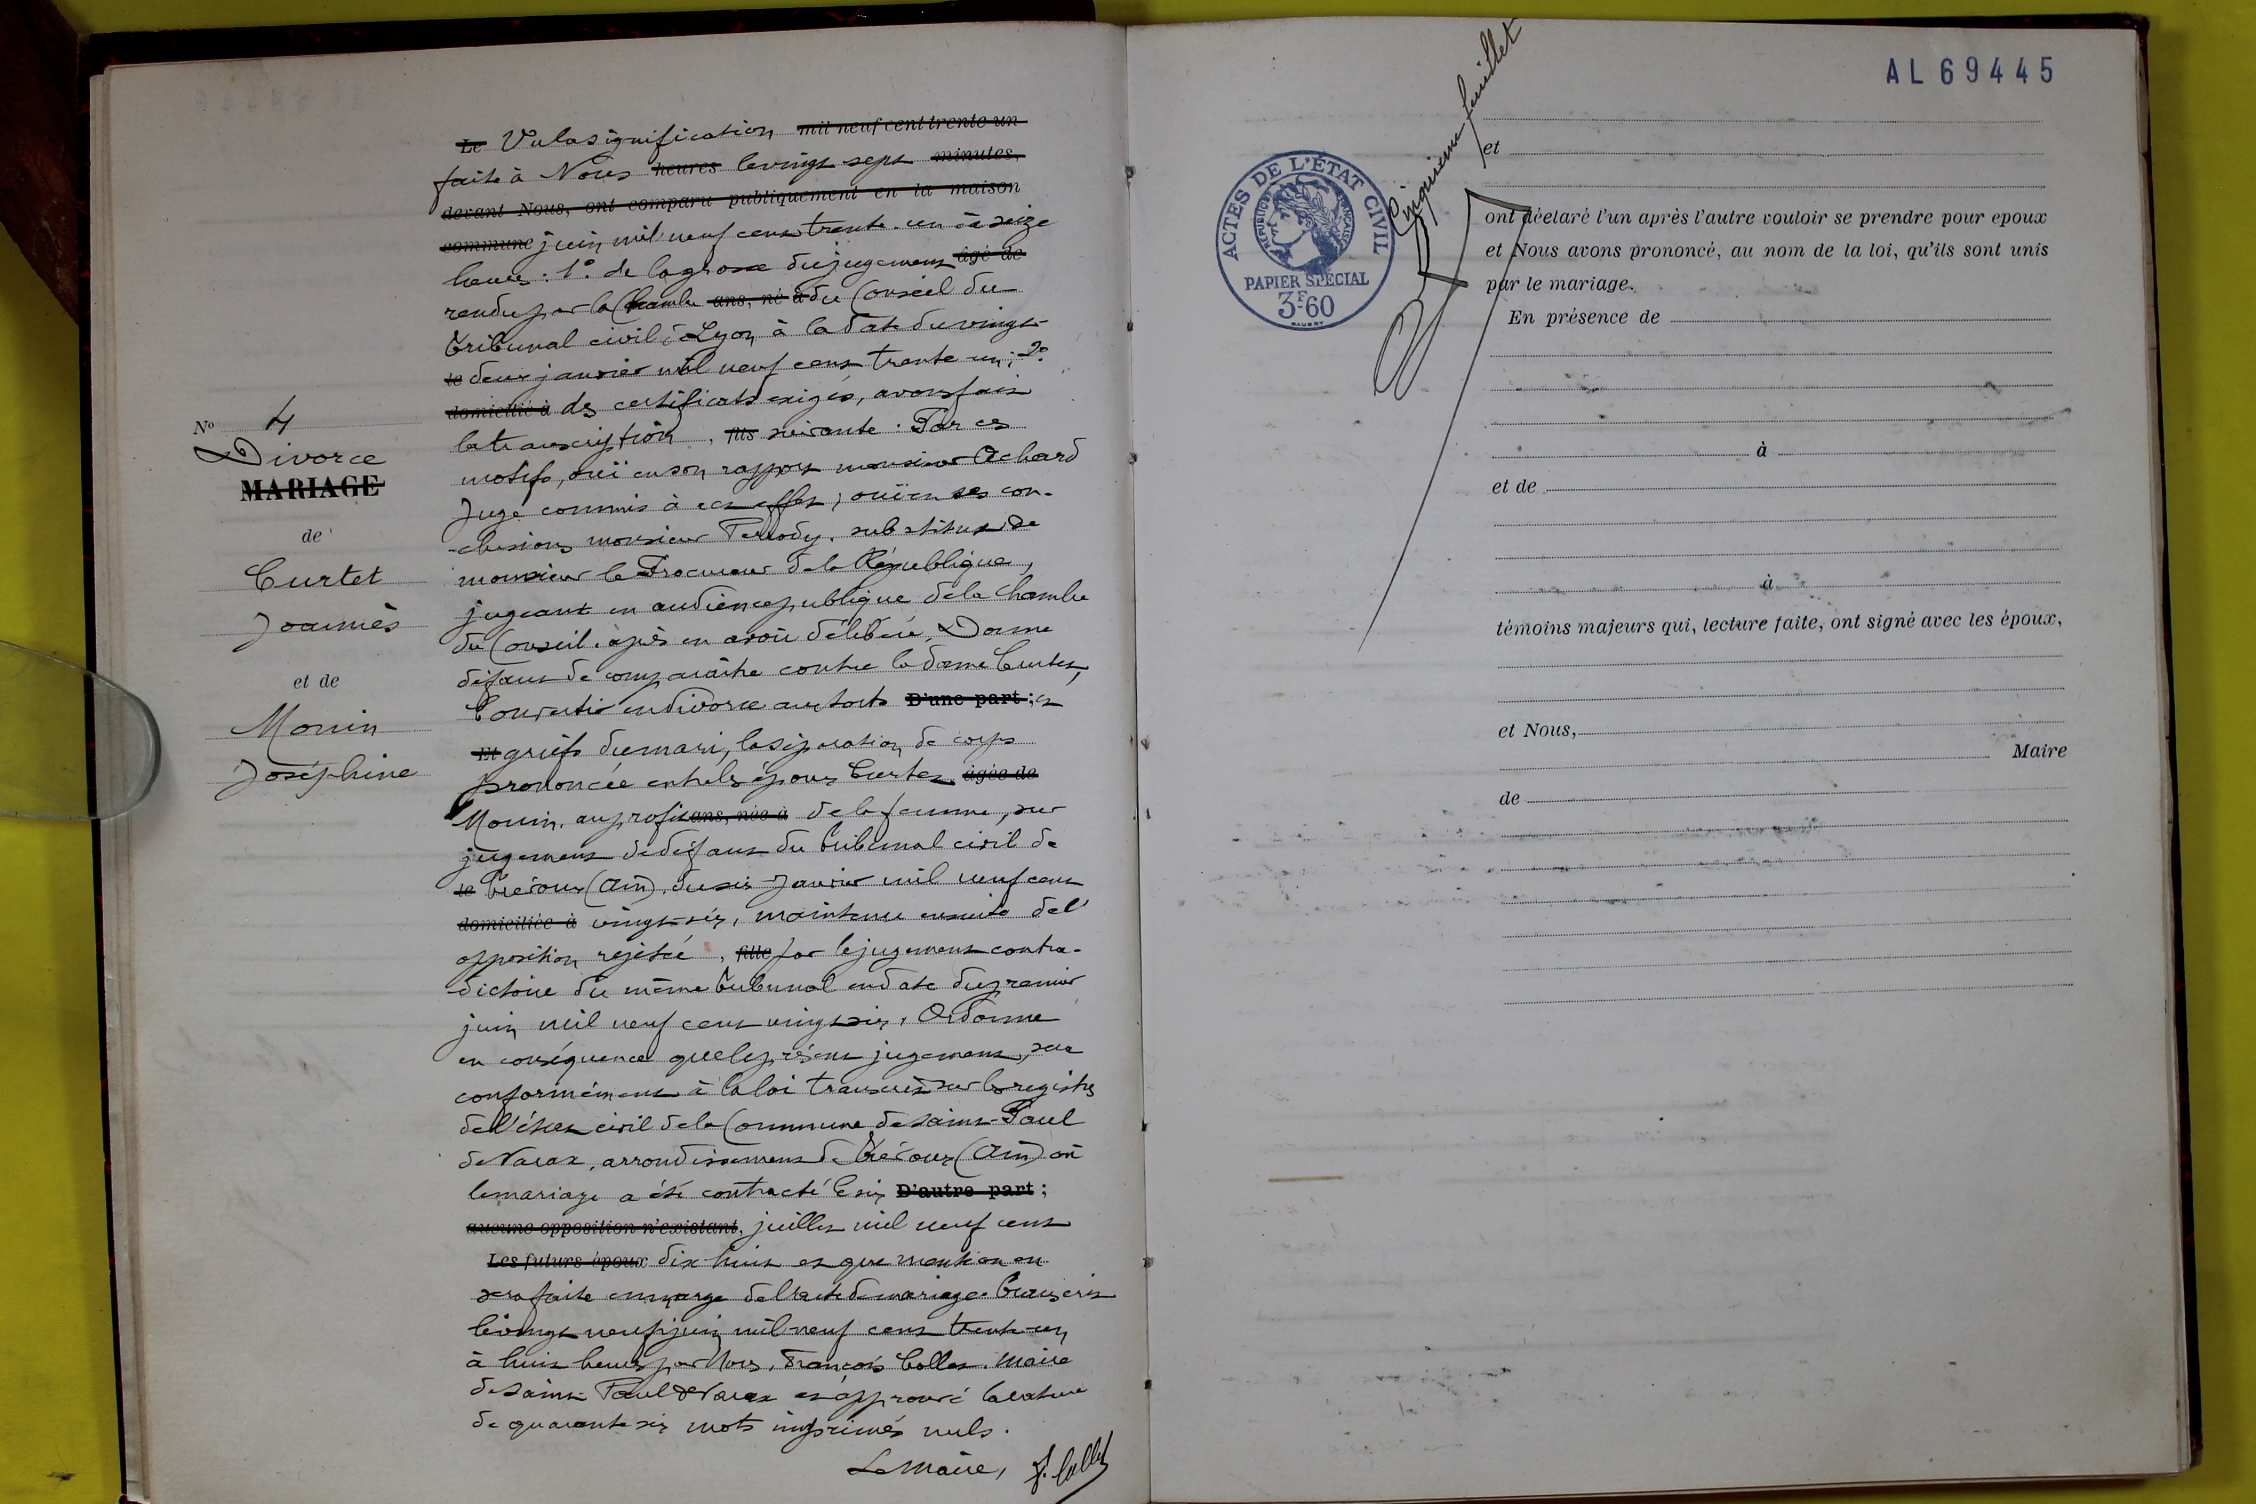 Le Vu la signification mil neuf cent trente un
faite à Nous heures le vingt sept minutes,
devant Nous, ont comparu publiquement en la maison
commune juin mil neuf cent trente-un à seize
heures : 1° de la grosse du jugement âgé de
rendu par la Chambre ans, né à du Conseil du
Tribunal civil de Lyon à la date du vingt-
le deux janvier mil neuf cent trente un ; 2°
domicilié à des certificats exigés, avons fait
la transcription, fils suivante. Par ces
motifs, ouï en son rapport monsieur Achard
Juge commis à cet effet ; ouï en ses con-
clusions monsieur substitut de
monsieur le Procureur de la République,
jugeant en audience publique de la Chambre
du Conseil, après en avoir délibéré, Donne
défaut de comparaître contre la dame Curtet,
Convertit en divorce aux torts D'une part ; et
Et griefs du mari, la séparation de corps
prononcée entre les époux Curtet- âgée de
Monin, au profit ans, née à de la femme, sur
jugement de défaut du Tribunal civil de
le Trévoux (Ain), du six Janvier mil neuf cent
domiciliée à vingt-six, maintenu ensuite de l'
opposition rejetée, fille par le jugement contra-
dictoire du même Tribunal en date du premier
juin mil neuf cent vingt six, Ordonne
en conséquence que le présent jugement, sera
conformément à la loi transcrit sur les registres
de l'état civil de la Commune de Saint-Paul
de Varax, arrondissement de Trévoux (Ain) où
le mariage a été contracté le six D'autre part ;
aucune opposition n'existant, juillet mil neuf cent
Les futurs époux dix huit et que mention en
sera faite en marge de l'acte de mariage. Transcrit
le vingt neuf juin mil neuf cent trente-un
à huit heures par Nous, François Collet, Maire
de Saint Paul de Varax et approuvé la rature
de quarante six mots imprimés nuls.
Le Maire, F. Collet
N° 4
Divorce
MARIAGE
de
Curtet
Joannès
et de
Monin
Joséphine
AL 69445
Cinquième feuillet
ACTES DE L'ÉTAT CIVIL
RÉPUBLIQUE FRANÇAISE
PAPIER SPÉCIAL
3F60
et
ont déclaré l'un après l'autre vouloir se prendre pour epoux
et Nous avons prononcé, au nom de la loi, qu'ils sont unis
par le mariage.
En présence de
à
et de
à
témoins majeurs qui, lecture faite, ont signé avec les époux,
et Nous,
Maire
de